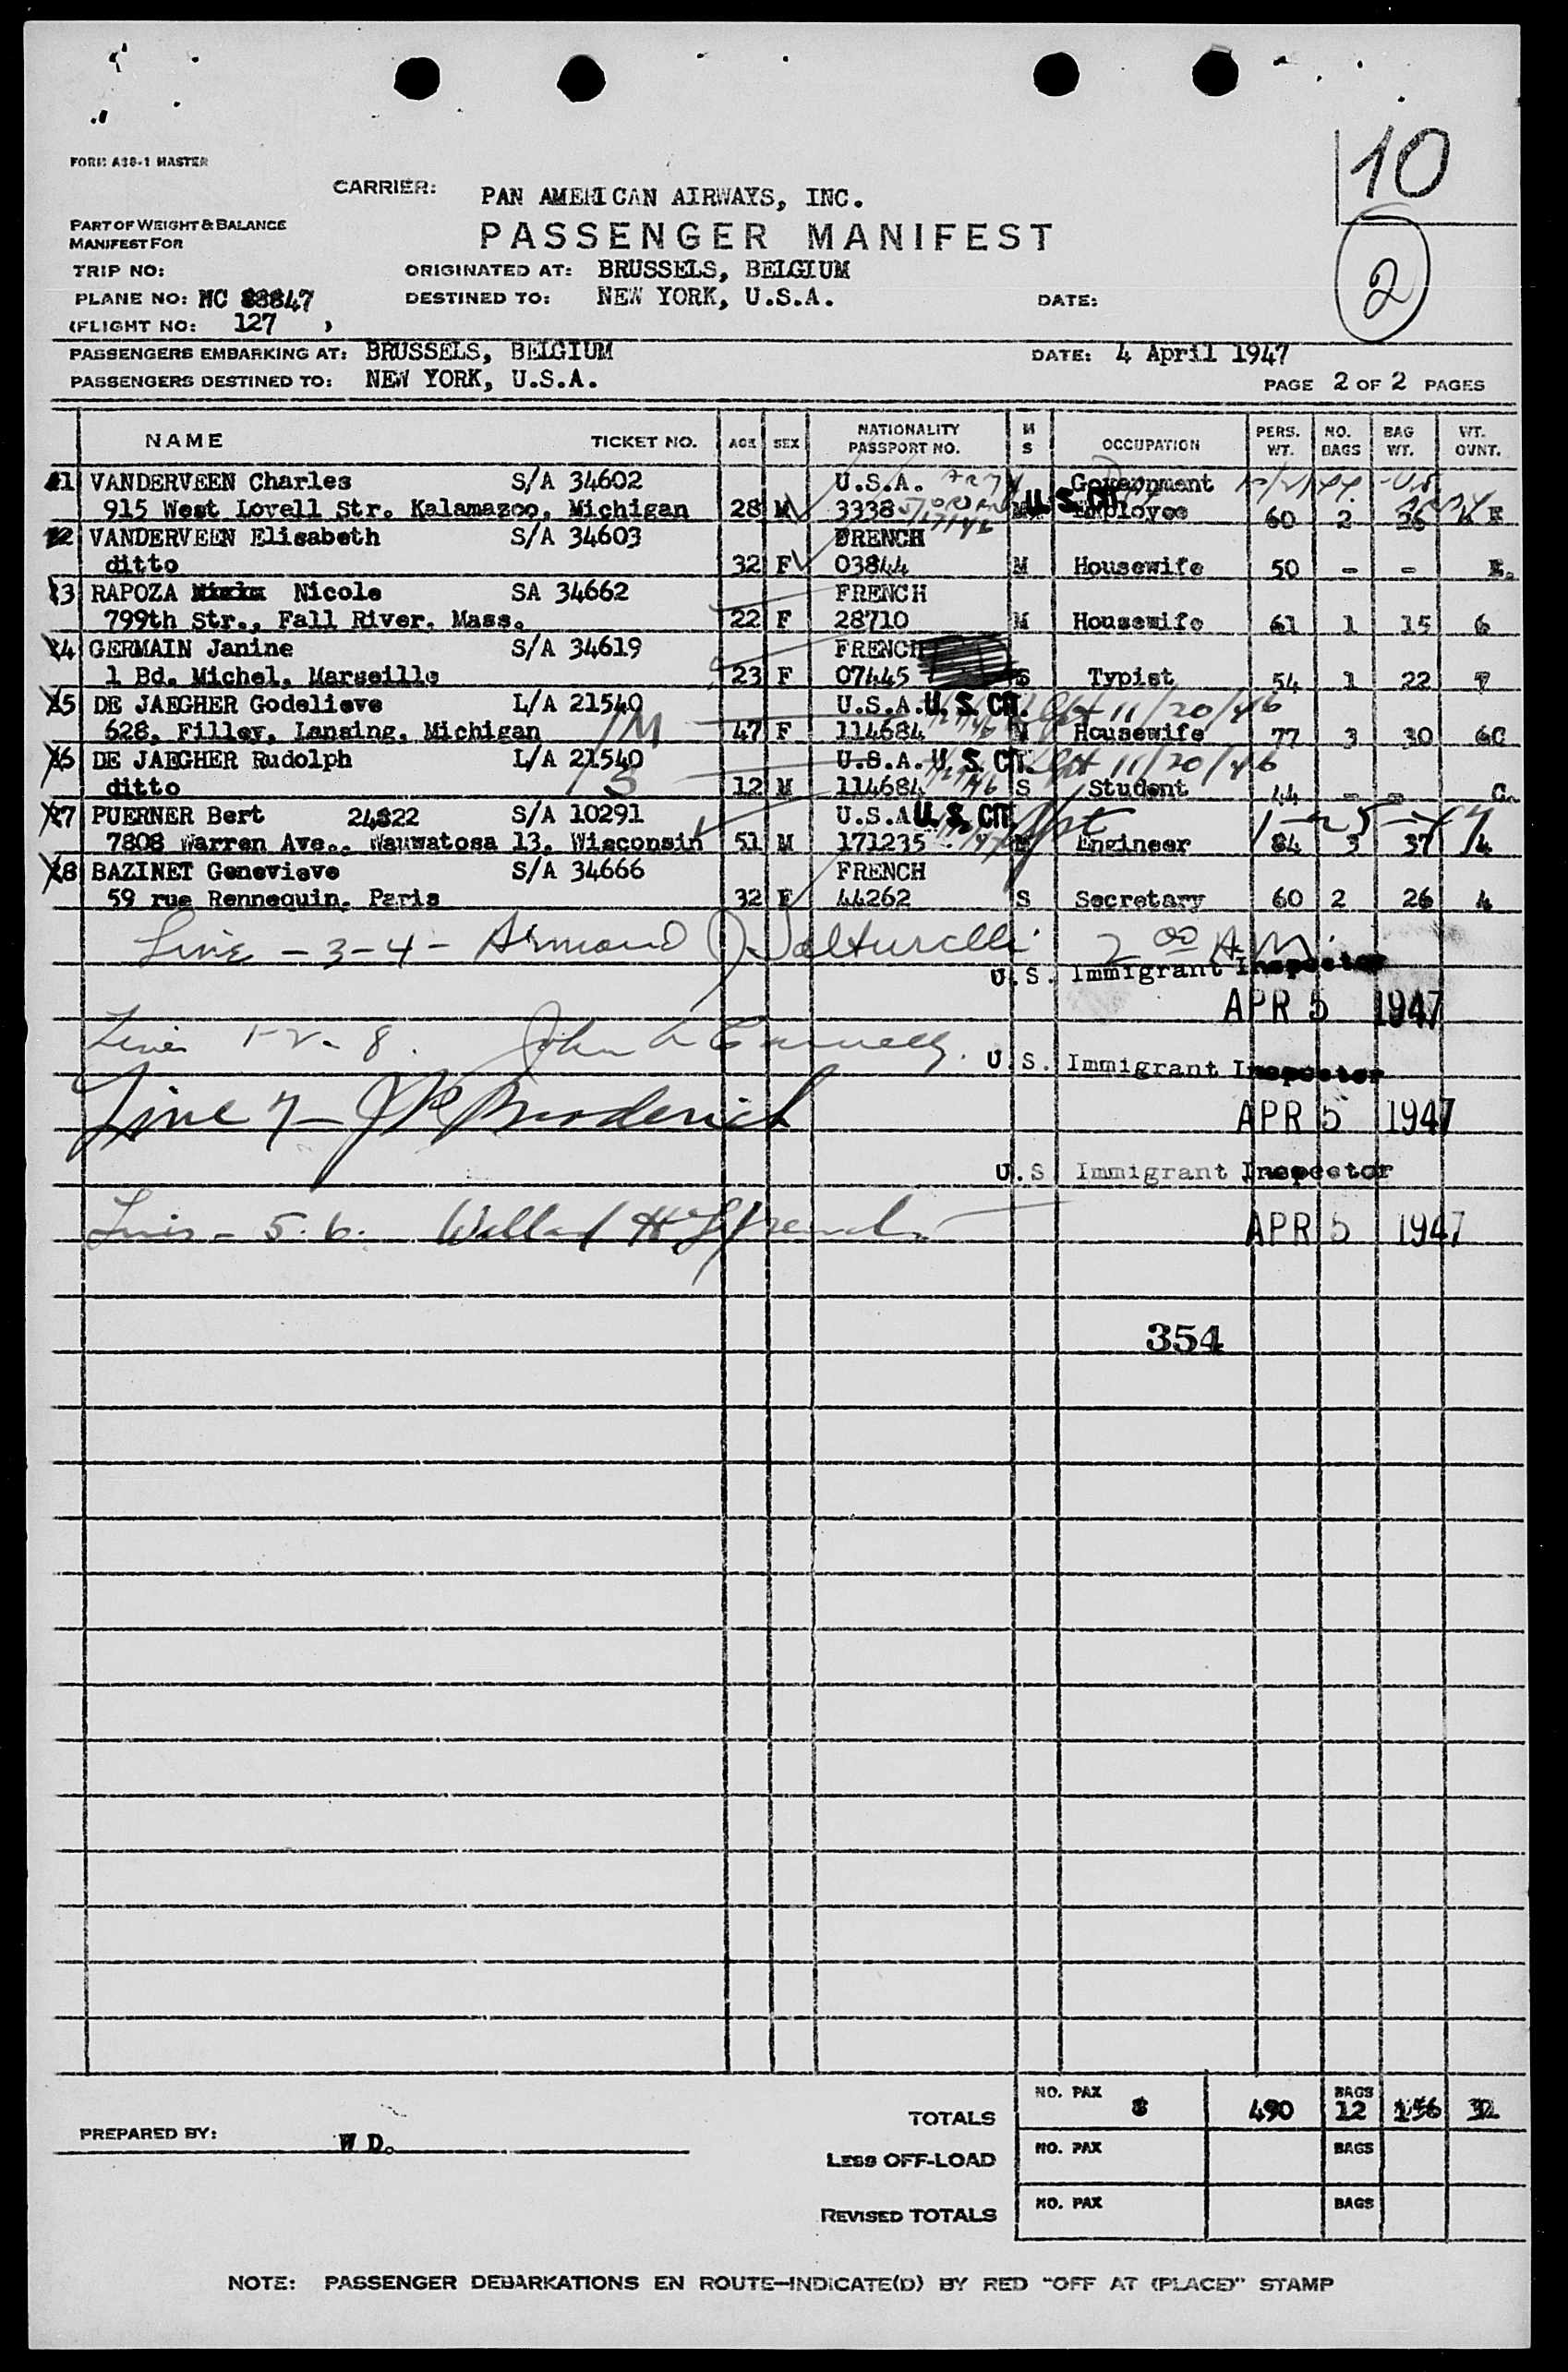 10
2
FORM A38-1 MASTER
CARRIER: PAN AMERICAN AIRWAYS, INC.
PART OF WEIGHT & BALANCE
MANIFEST FOR
PASSENGER MANIFEST
TRIP NO: ORIGINATED AT: BRUSSELS, BELGIUM
PLANE NO: NC 88847 DESTINED TO: NEW YORK, U.S.A. DATE:
(FLIGHT NO: 127 )
PASSENGERS EMBARKING AT: BRUSSELS, BELGIUM DATE: 4 April 1947
PASSENGERS DESTINED TO: NEW YORK, U.S.A. PAGE 2 OF 2 PAGES
NAME TICKET NO. AGE SEX NATIONALITY PASSPORT NO. M S OCCUPATION PERS. WT. NO. BAGS BAG WT. WT. OVNT.
1 VANDERVEEN Charles S/A 34602 U.S.A. Government
915 West Lovell Str. Kalamazoo, Michigan 28 M 3338 U. S. CIT. Employee 60 2 26 4 E
2 VANDERVEEN Elisabeth S/A 34603 FRENCH
ditto 32 F 03844 M Housewife 50 - - E.
3 RAPOZA Nicole SA 34662 FRENCH
799th Str., Fall River, Mass. 22 F 28710 M Housewife 61 1 15 6
4 GERMAIN Janine S/A 34619 FRENCH
1 Bd. Michel, Marseille 23 F 07445 S Typist 54 1 22 7
5 DE JAEGHER Godelieve L/A 21540 U.S.A. U. S. CIT. 11/20/46
628, Filley, Lansing, Michigan M 47 F 114684 M Housewife 77 3 30 6C
6 DE JAEGHER Rudolph L/A 21540 U.S.A. U. S. CIT. 11/20/46
ditto S 12 M 114684 S Student 44 - - C.
7 PUERNER Bert 24822 S/A 10291 U.S.A U. S. CIT. 1-25-47
7808 Warren Ave., Wauwatosa 13, Wisconsin 51 M 171235 Engineer 84 3 37 4
8 BAZINET Genevieve S/A 34666 FRENCH
59 rue Rennequin, Paris 32 F 44262 S Secretary 60 2 26 4
Line - 3-4- Armand J. 2 00 A.M.
U.S. Immigrant Inspector
APR 5 1947
Lines 1-2-8. John
U.S. Immigrant Inspector
Line 7- J P Broderick
APR 5 1947
U.S Immigrant Inspector
Lines - 5.6. Willard H
APR 5 1947
354
TOTALS NO. PAX 8 490 BAGS 12 156 32
PREPARED BY: W D.
LESS OFF-LOAD NO. PAX BAGS
REVISED TOTALS NO. PAX BAGS
NOTE: PASSENGER DEBARKATIONS EN ROUTE—INDICATE(D) BY RED "OFF AT (PLACE)" STAMP